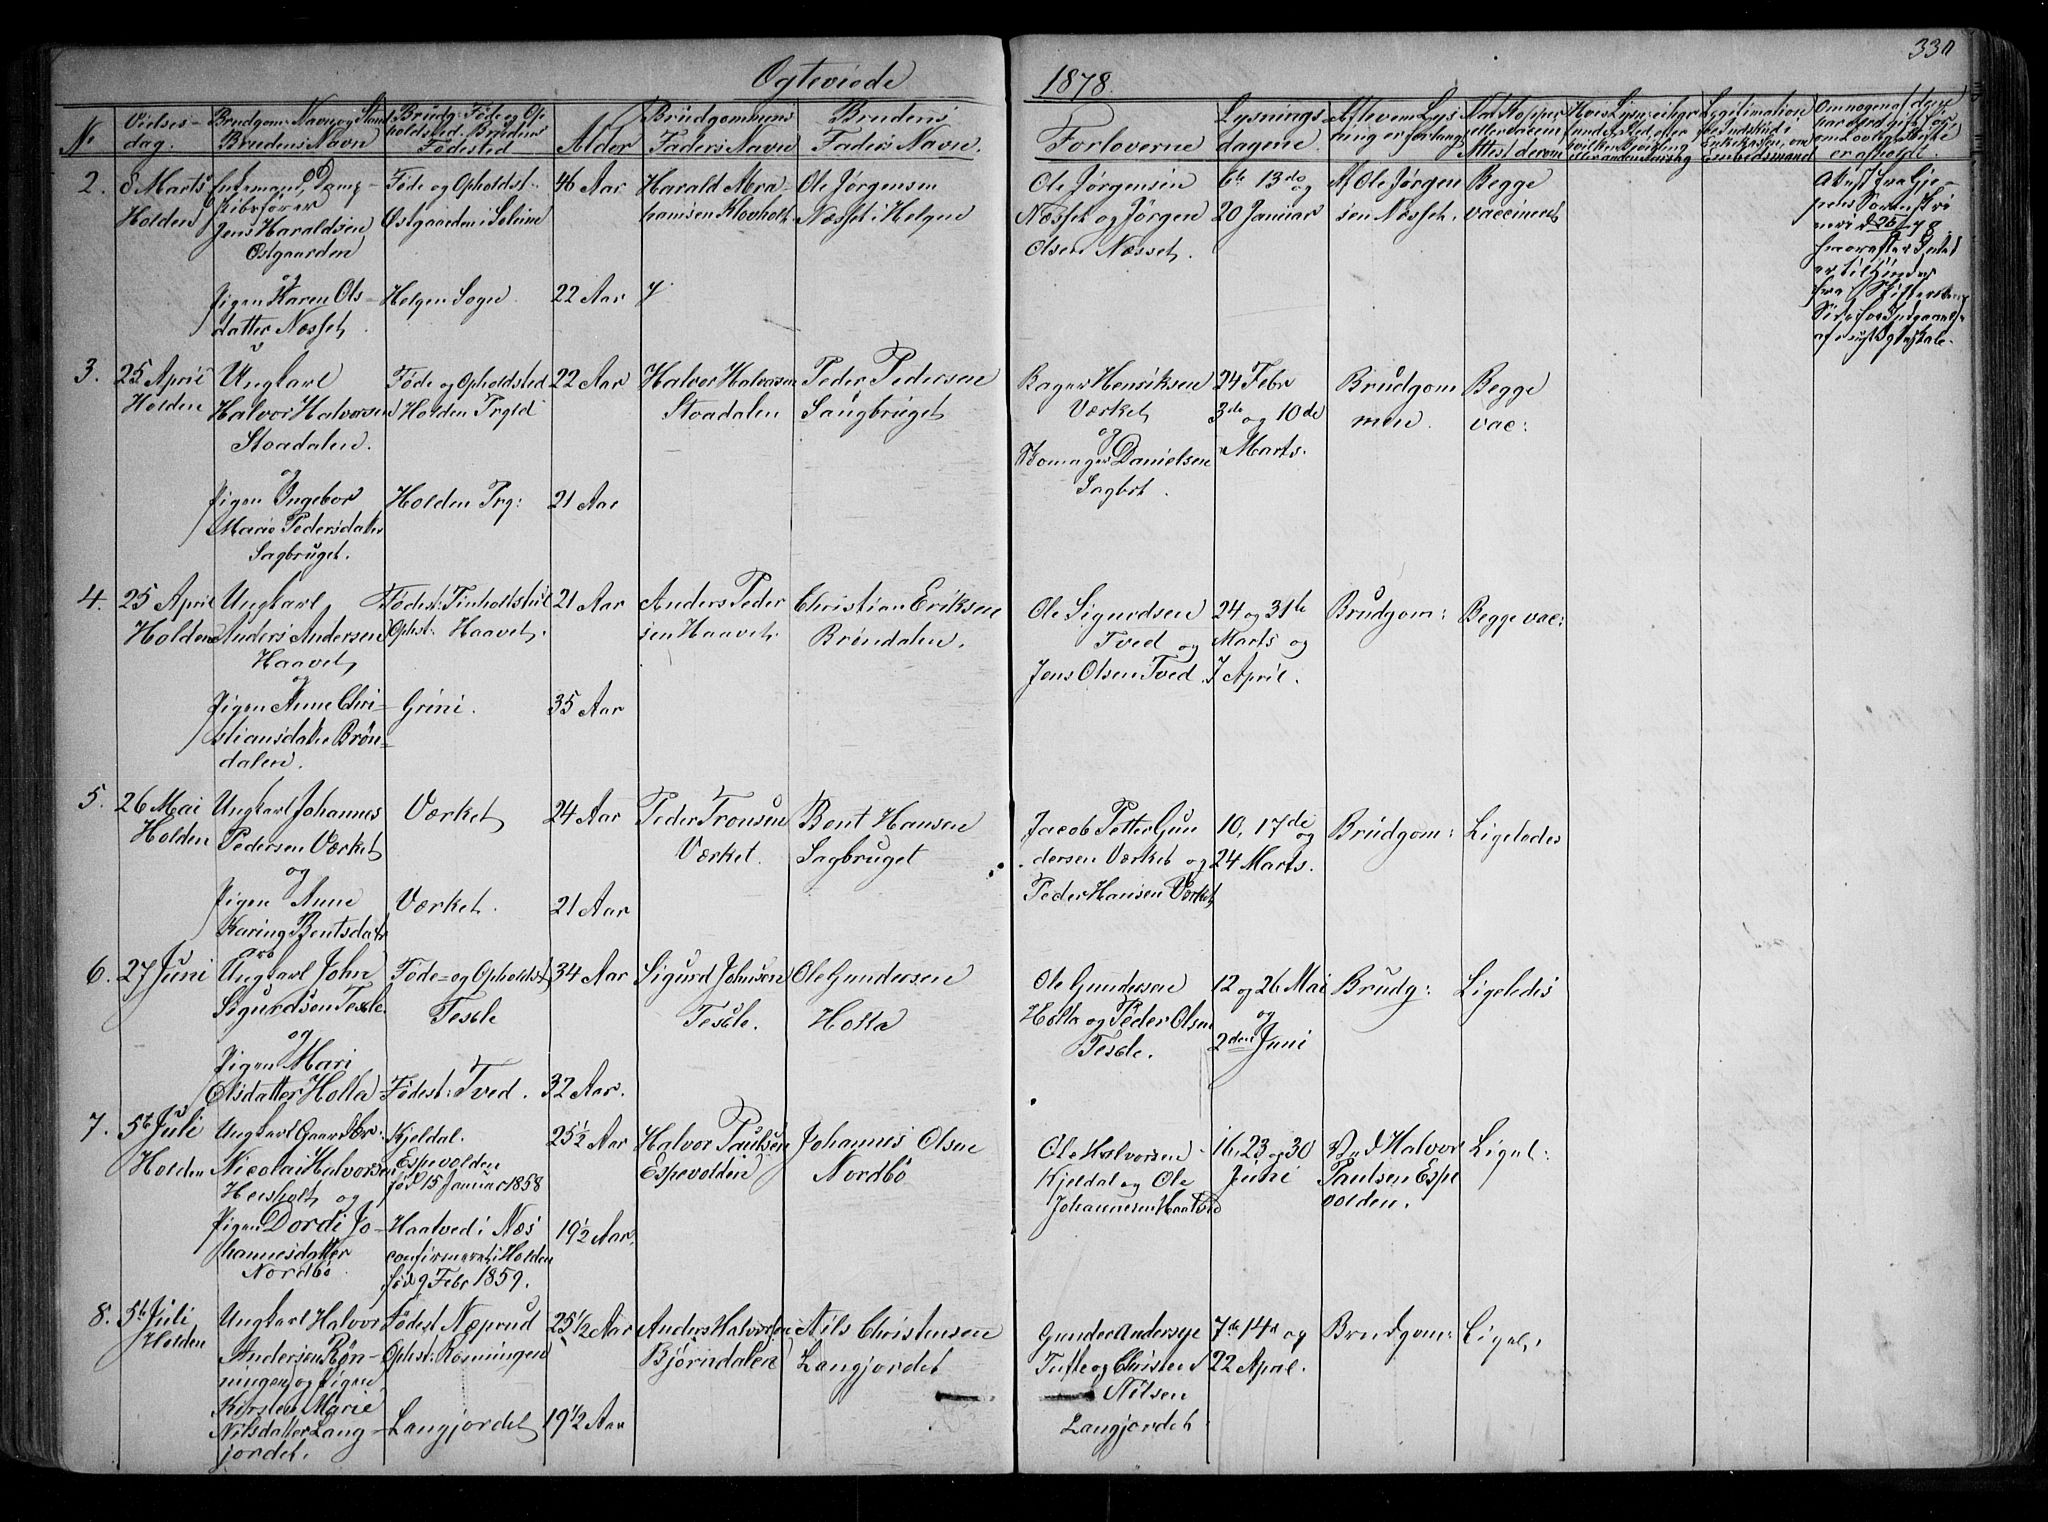 Ogteviede
1878.
330
No
Vielses-
dag.
Brudgom: Navn og Stand
Brudens Navn
Brudg: Føde og Op
holdsted. Brudens
Fødested
Alder
Brudgommens
Faders Navn
Brudens
Faders Navn.
Forloverne
Lysnings
dagene.
Af hvem Lys
ning er forlangt
Nat. Kopper
eller vaccin
Attest derom
2.
8 Marts
Holden
Enkemand, Damp-
skibsfører
Jens Haraldsen
Østgaarden
og
Pigen Karen Ols-
datter Næsset.
Føde og Opholdst:
Østgaarden i Solum
Helgen Sogn.
46 Aar
22 Aar
Harald Abra-
hamsen Klovholt
Ole Jørgensen
Næsset i Helgen
Ole Jørgensen
Næsset og Jørgen
Olsen Næsset.
6te 13de og
20 Januar
Af Ole Jørgen
sen Næsset.
Begge
vaccineret
3.
25 April
Holden
Ungkarl
Halvor Halvorsen
Stoadalen.
og
Pigen Ingebor
Marie Pedersdatter
Sagbruget.
Føde og Opholdsted
Holden Prgld
Holden Prg:
22 Aar
21 Aar
Halvor Halvorsen
Stoadalen
Peder Pedersen
Saugbruget
Bager Henriksen
Værket
og
Danielsen
Sagbrt.
24 Febr
3de og 10de
Marts.
Brudgom
men.
Begge
vac:
4.
25 April
Holden
Ungkarl
Anders Andersen
Haavet
og
Pigen Anne Chri-
stiansdatter Brøn-
dalen.
Fødest: Finholtshul
Ophst: Haavet.
Grini.
21 Aar
35 Aar
Anders Peder
sen Haavet
Christian Eriksen
Brøndalen.
Ole Sigurdsen
Tved og
Jens Olsen Tved
24 og 31te
Marts og
7 April.
Brudgom:
Begge vac:
5.
26 Mai
Holden
Ungkarl Johannes
Pedersen Værket
og
Pigen Anne
Karing Bentsdatr
Værket
Værket.
24 Aar
21 Aar
Peder Tronsen
Værket.
Bent Hansen
Sagbruget
Jacob Petter Gun
dersen Værket og
Peder Hansen Værket
10, 17de og
24 Marts.
Brudgom:
Ligeledes
6.
27 Juni
Ungkarl John
Sigurdsen Tesle.
og
Pigen Mari
Olsdatter Holla
Føde- og Opholdst
Tesle
Fødest: Tved.
34 Aar
32 Aar.
Sigurd Johnsen
Tesle.
Ole Gundersen
Holla
Ole Gundersen
Holla og Peder Olsen
Tesle.
12 og 26 Mai
og
2den Juni
Brudg:
Ligeledes
7.
5t Juli
Holden
Ungkarl Gaardbr:
Nicolai Halvorsen
Heisholt og
Pigen Dordi Jo-
hannesdatter
Nordbø
Kjeldal.
Espevolden
fød 15 Januar 1858
Haatved i Næs
confirmeret i Holden
fød 9 Febr 1859.
25 1/2 Aar
19 1/2 Aar.
Halvor Paulsen
Espevolden
Johannes Olsen
Nordbø
Ole Halvorsen
Kjeldal og Ole
Johannesen Haatved
16, 23 og 30
Juni
Ved Halvor
Paulsen Espe
volden.
Ligel:
8.
5t Juli
Holden
Ungkarl Halvor
Andersen Røn-
ningen og Pigen
Kirsten Marie
Nilsdatter Lang-
jordet.
Fødest Næprud
Ophst: Rønningen
Langjordet
25 1/2 Aar
19 1/2 Aar
Anders Halvorsen
Bjørndalen
Nils Christensen
Langjordet
Gunder Andersen
Tufte og Christen
Nilsen
Langjordet
7de 14d og
22 April.
Brudgom:
Ligel.